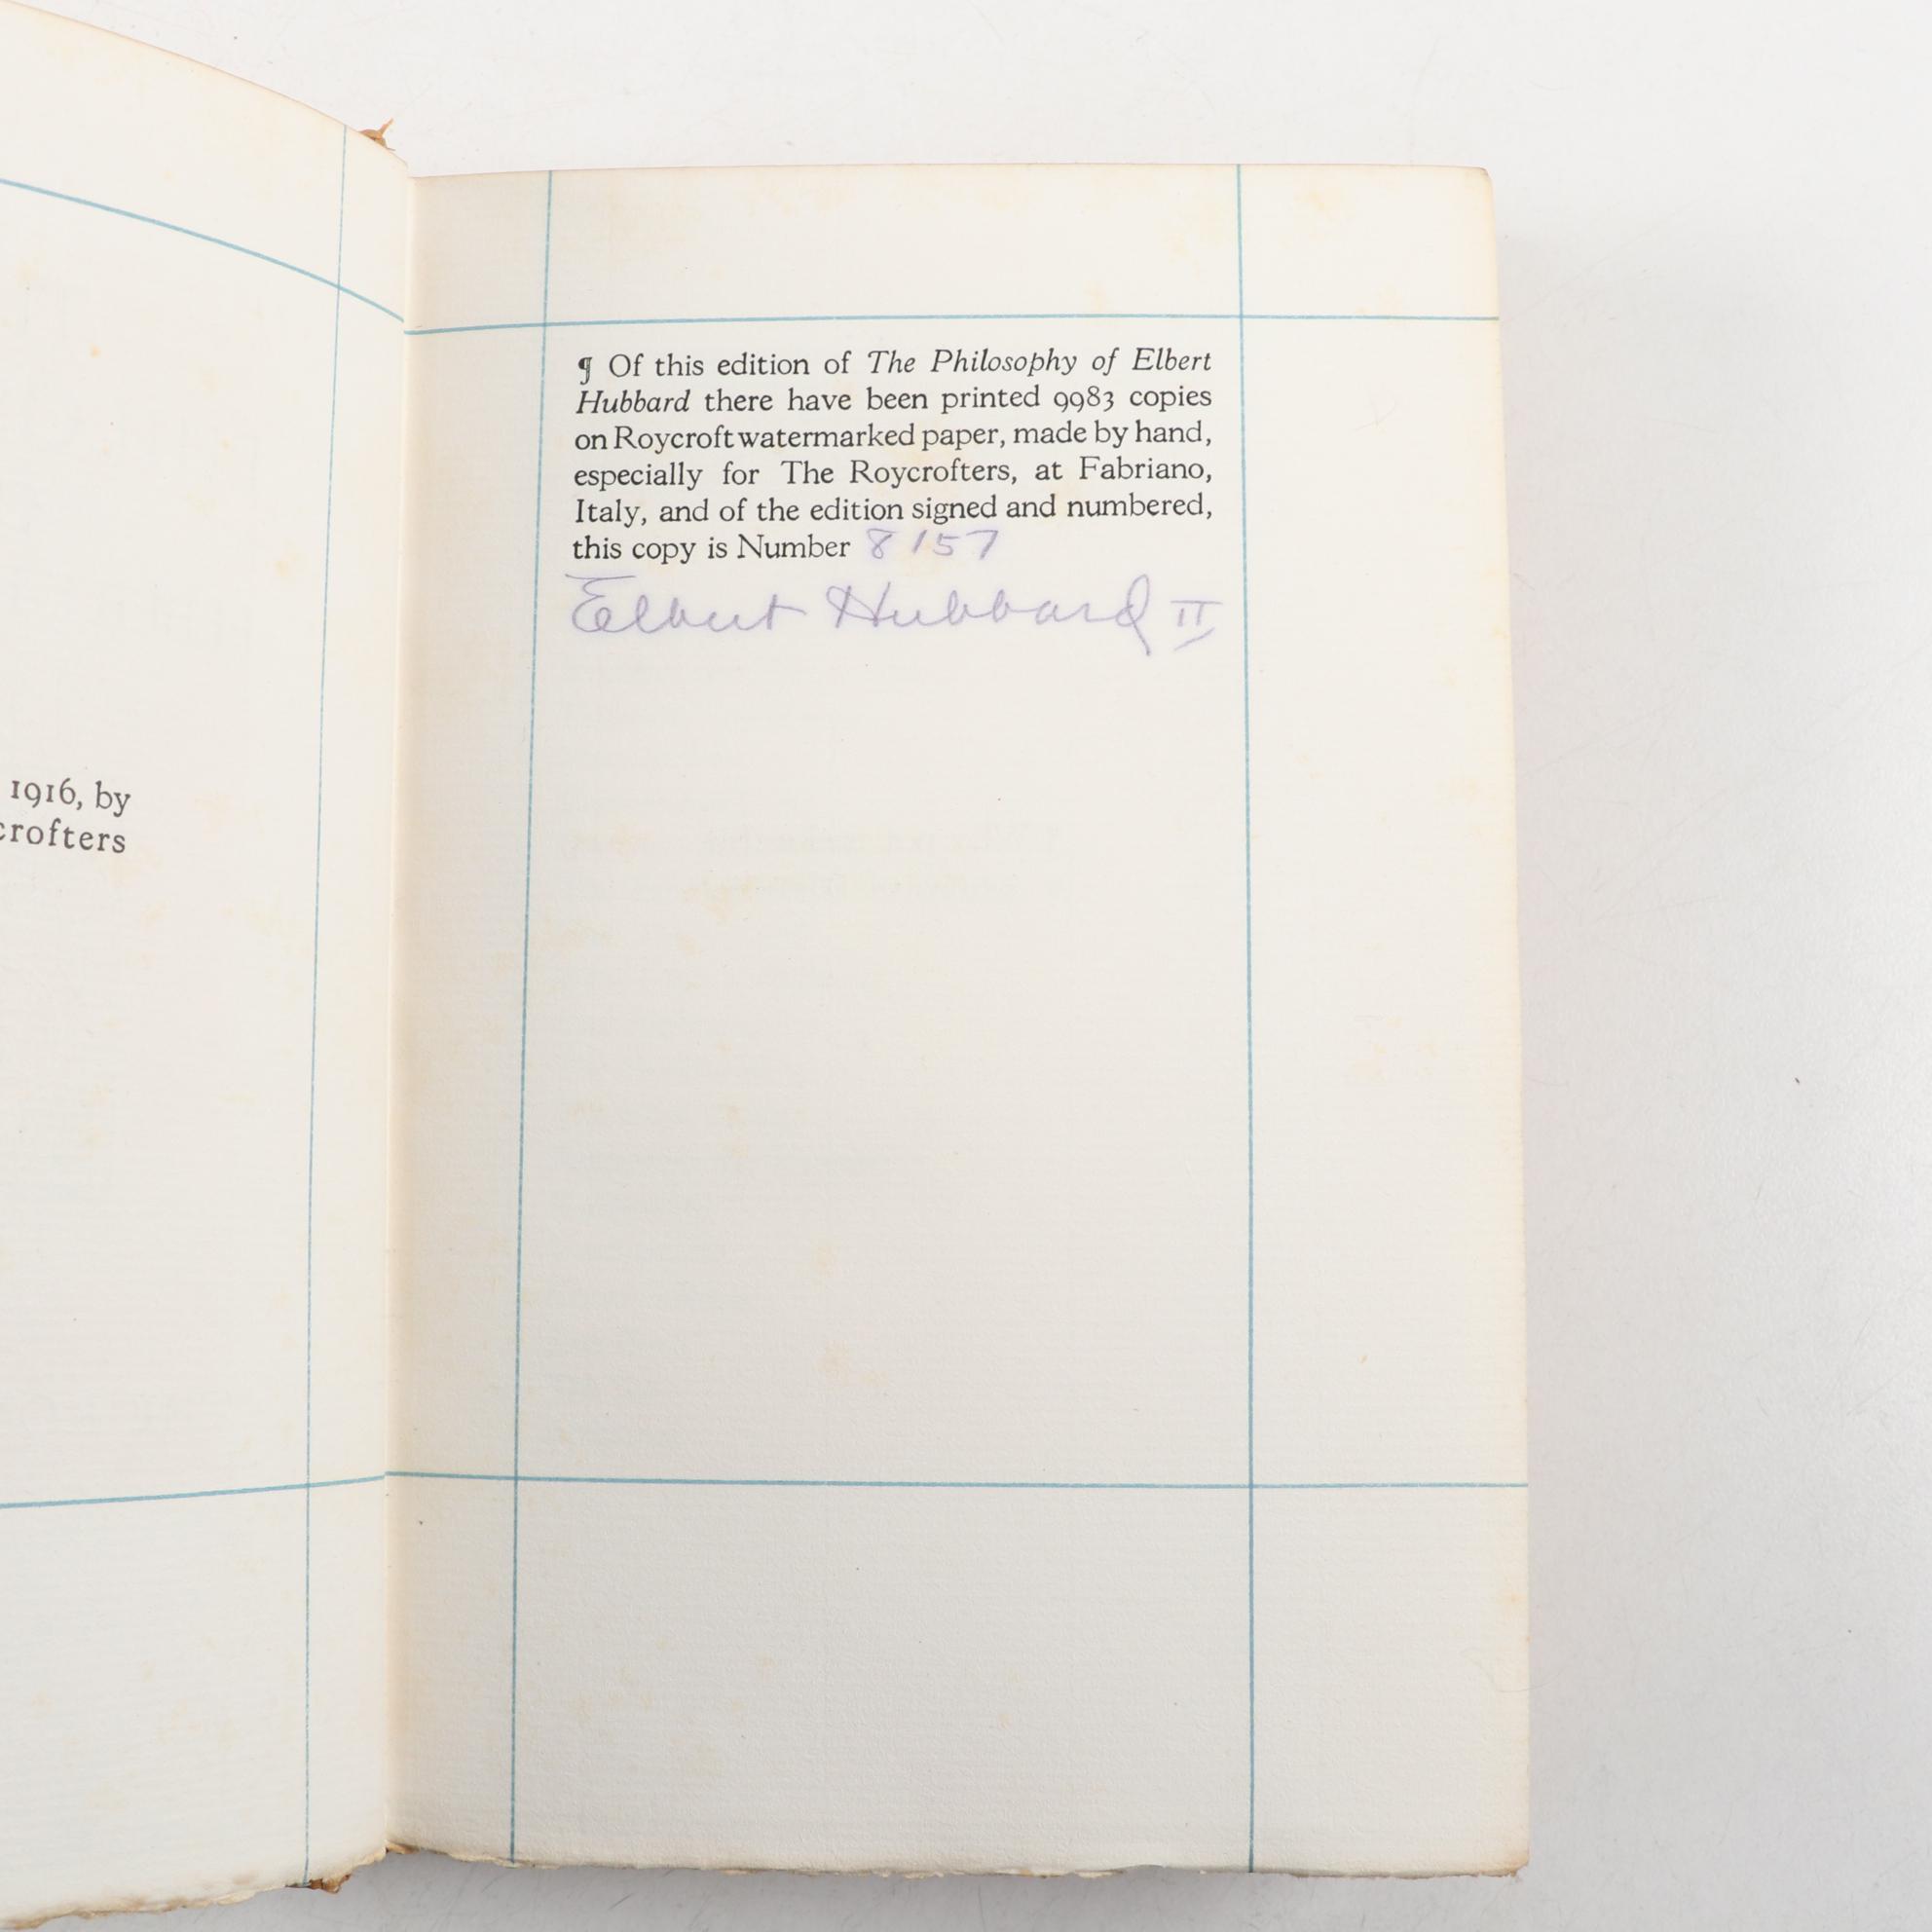 1916, by
crofters
¶ Of this edition of The Philosophy of Elbert
Hubbard there have been printed 9983 copies
on Roycroft watermarked paper, made by hand,
especially for The Roycrofters, at Fabriano,
Italy, and of the edition signed and numbered,
this copy is Number 8157
Elbert Hubbard II